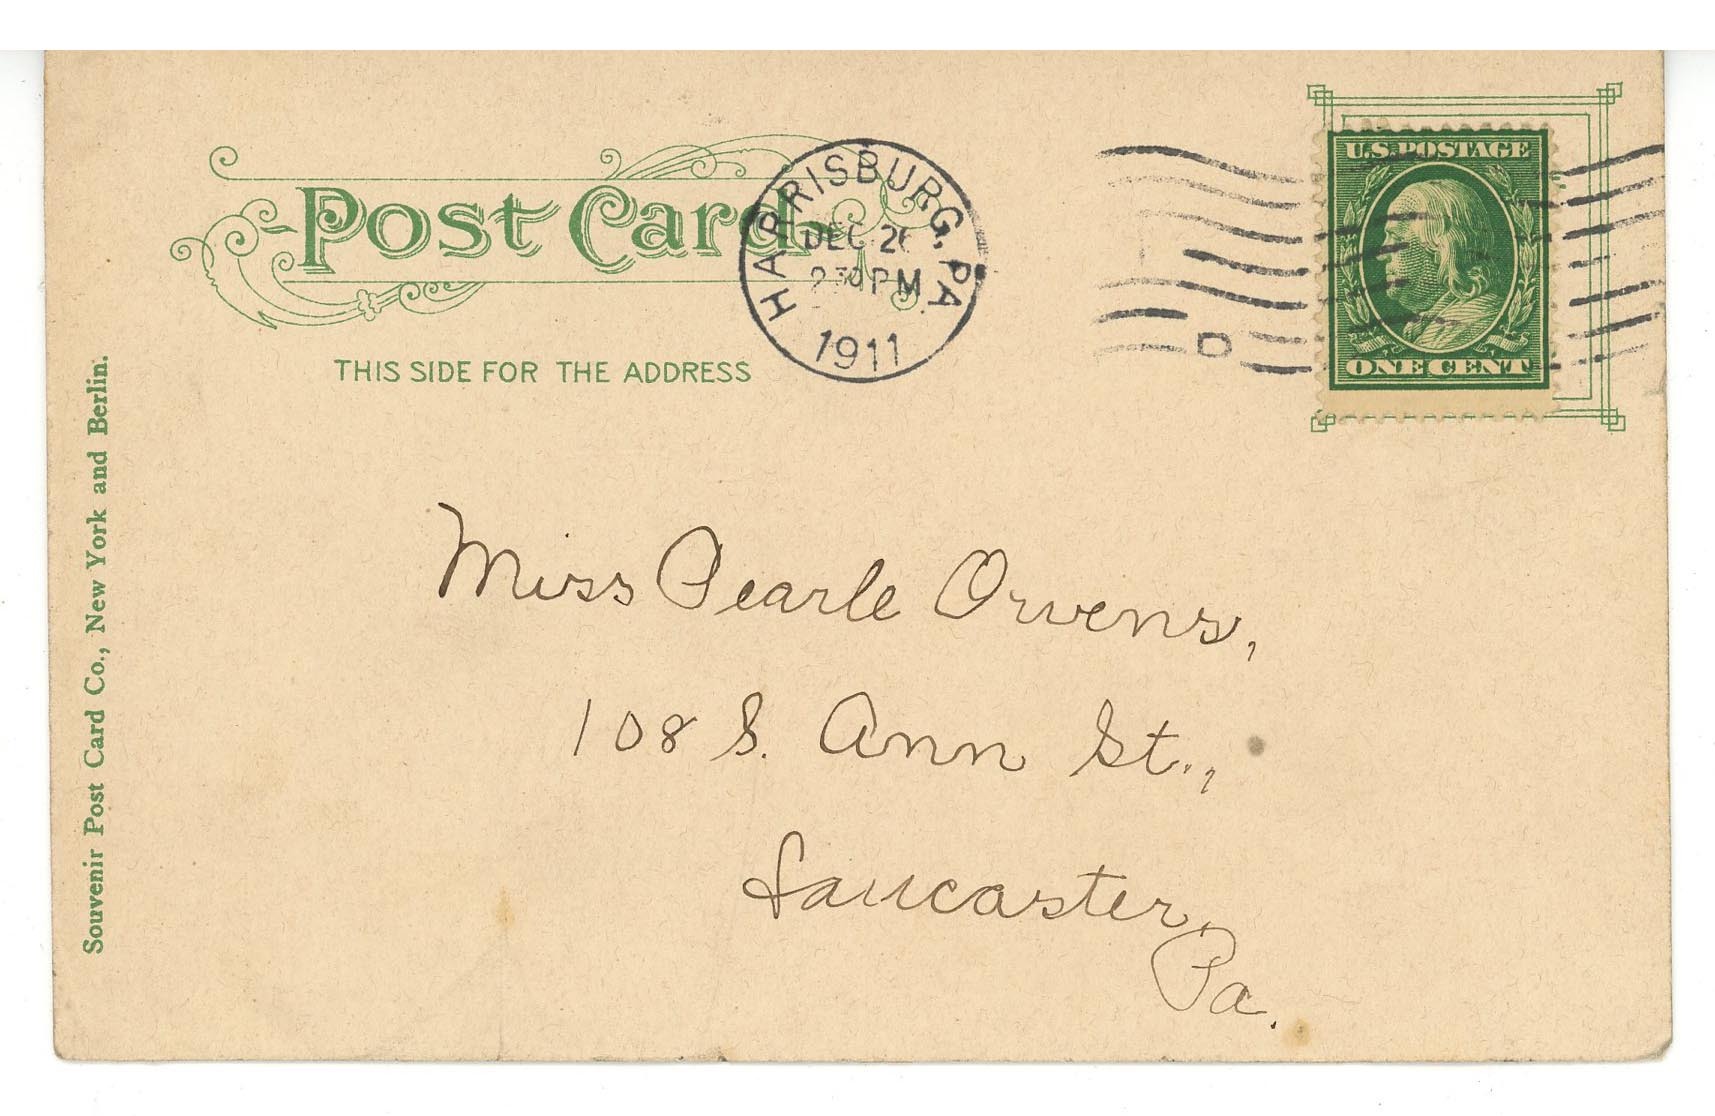 Post Card
HARRISBURG, PA
DEC 26
2 30 PM
1911
D
U.S. POSTAGE
ONE CENT
THIS SIDE FOR THE ADDRESS
Souvenir Post Card Co., New York and Berlin.
Miss Pearle Orvens,
108 S. Ann St.,
Lancaster,
Pa.